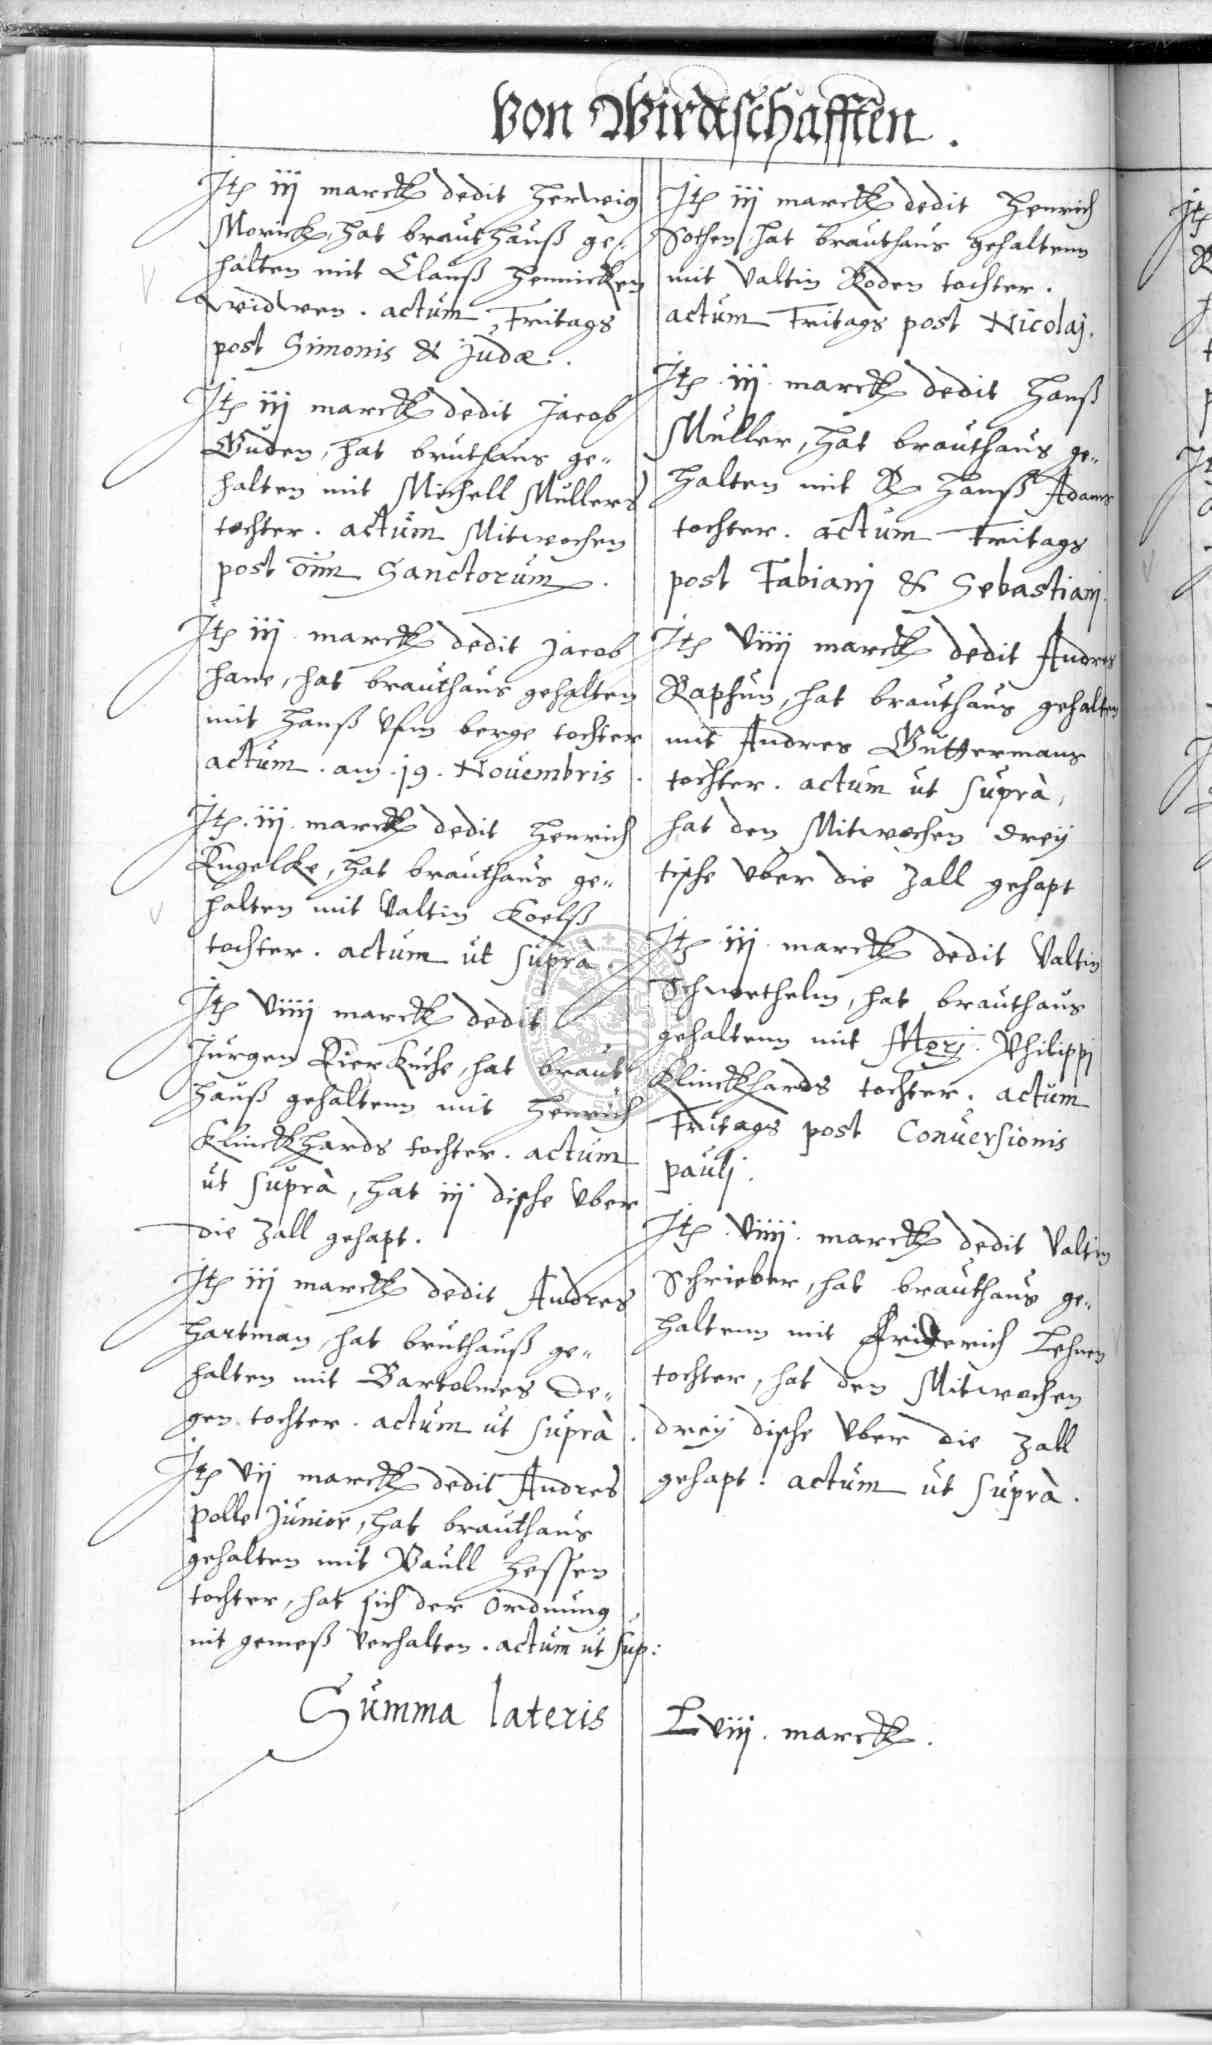 Von Wirdtschafften.
Itē iij marck dedit Herwig
Morick, hat brauthauß ge-
halten mit Clauß Hennicken
widwen. actum Fritags
post Simonis & Judæ.
Itē iij marck dedit Jacob
Guden, hat bruthaus ge-
halten mit Michell Mullers
tochter. actum Mitwochen
post om̄ Sanctorum.
Itē iij marck dedit Jacob
Hane, hat brauthaus gehalten
mit Hanß Vfm berge tochter
actum. am. 19. Nouembris.
Itē. iij. marck dedit Henrich
Engelke, hat brauthaus ge-
halten mit Valtin Koelß
tochter. actum ut suprà.
Itē viiij marck dedit
Jurgen Kierkuche, hat braut
hauß gehaltenn mit Henrich
Klinckhards tochter. actum
ut suprà, hat iij dische vber
die zall gehapt.
Itē iij marck dedit Andres
Hartman, hat bruthauß ge-
halten mit Bartolmes De-
gen tochter. actum ut suprà.
Itē vij marck dedit Andres
Polle Junior, hat brauthaus
gehalten mit Paull Hessen
tochter, hat sich der Ordnung
nit gemeß verhalten. actum ut sup:
Summa lateris
Itē iij marck dedit Henrich
Sothen, hat brauthaus gehaltenn
mit Valtin Roden tochter.
actum Fritags post Nicolaj.
Itē. iij. marck dedit Hanß
Muller, hat brauthaus ge-
halten mit R Hanß Adams
tochter. actum Fritags
post Fabianj & Sebastianj.
Itē viiij marck dedit Andres
Raphun, hat brauthaus gehalten
mit Andres Guttermans
tochter. actum ut suprà,
hat den Mitwochen dreÿ
tische vber die zall gehapt
Itē. iij. marck dedit Valtin
Schwethelm, hat brauthaus
gehaltenn mit Mgrj. Philippj
Klinckhards tochter. actum
Fritags post Conuersionis
paulj.
Itē. viiij. marck dedit Valtin
Schrieber, hat brauthaus ge-
haltenn mit Friderich Lehnen
tochter, hat den Mitwochen
dreÿ dische vber die zall
gehapt. actum ut suprà.
Lviij. marck.